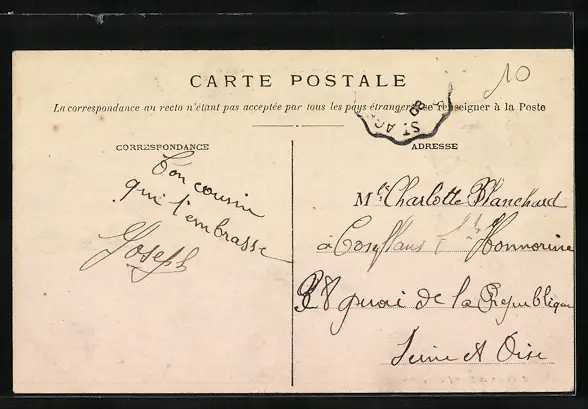 CARTE POSTALE
10
La correspondance au recto n'étant pas acceptée par tous les pays étrangers se renseigner à la Poste
08
ST AC
CORRESPONDANCE
Ton cousin
qui t'embrasse
Joseph
ADRESSE
Mlle Charlotte Blanchard
à Conflans Ste Honnorine
38 quai de la République
Seine et Oise